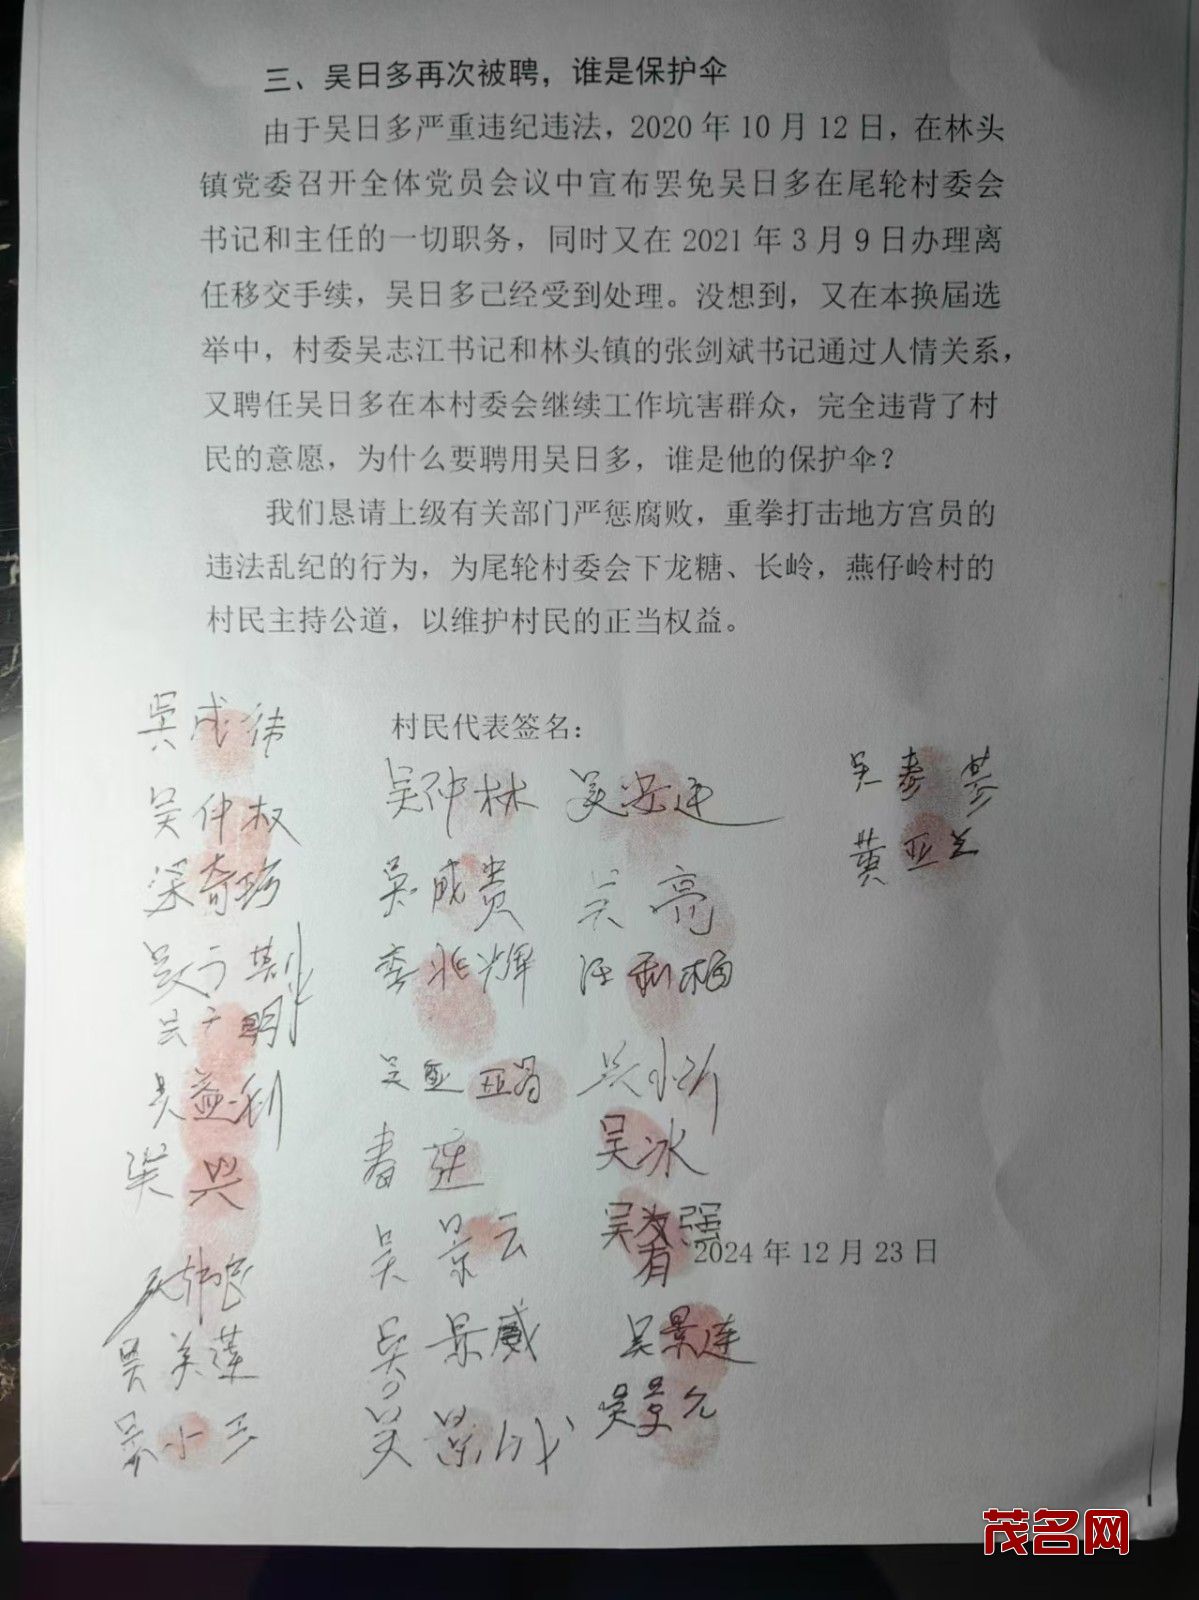 三、吴日多再次被聘，谁是保护伞
由于吴日多严重违纪违法，2020年10月12日，在林头
镇党委召开全体党员会议中宣布罢免吴日多在尾轮村委会
书记和主任的一切职务，同时又在2021年3月9日办理离
任移交手续，吴日多己经受到处理。没想到，又在本换届选
举中，村委吴志江书记和林头镇的张剑斌书记通过人情关系，
又聘任吴日多在本村委会继续工作坑害群众，完全违背了村
民的意愿，为什么要聘用吴日多，谁是他的保护伞？
我们恳请上级有关部门严惩腐败，重拳打击地方宫员的
违法乱纪的行为，为尾轮村委会下龙糖、长岭，燕仔岭村的
村民主持公道，以维护村民的正当权益。
村民代表签名：
吴仲权
吴仲林
吴成贵
吴亮
吴益利
吴冰
吴景云
吴景威
吴景连
吴小三
黄亚兰
2024年12月23日
茂名网